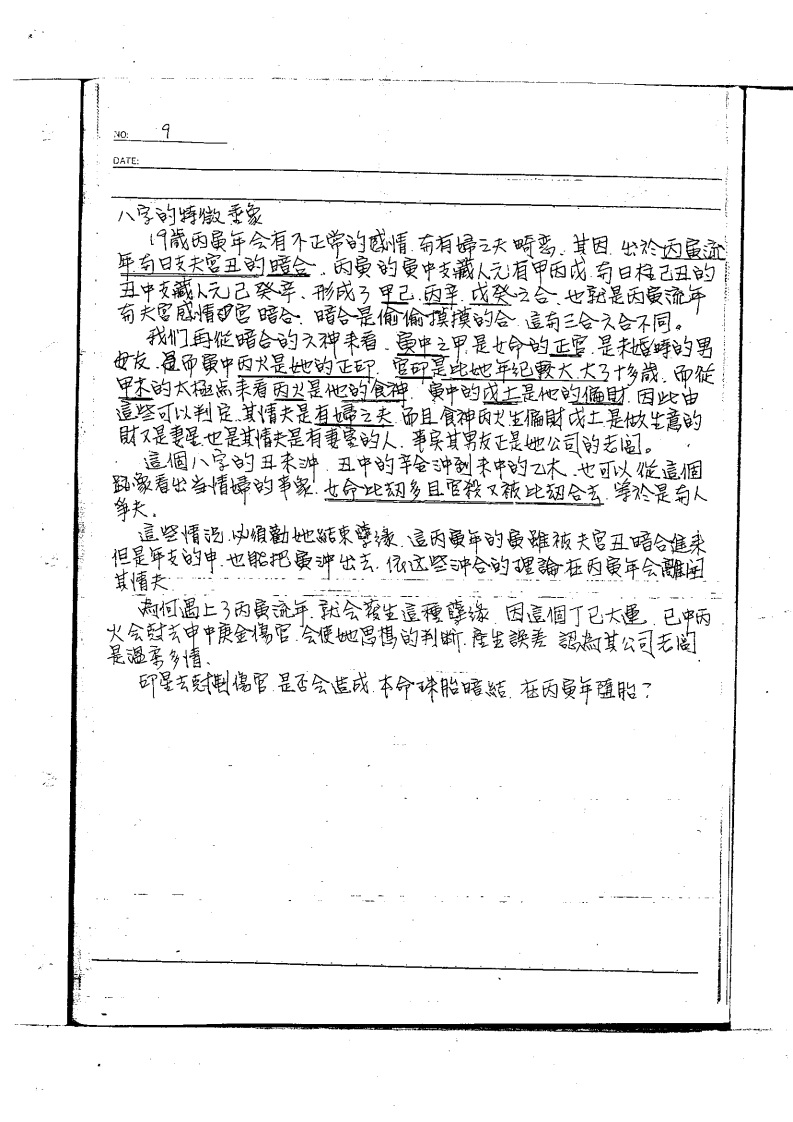 NO: 9
DATE:
八字的特徵垂象
19歲丙寅年会有不正常的感情,有有婦之夫畸恋,其因,出於丙寅流
年有日支夫宮丑的暗合,丙寅的寅中支藏人元有甲丙戊,有日柱己丑的
丑中支藏人元己癸辛,形成了甲己,丙辛,戊癸之合,也就是丙寅流年
有夫宮感情宮暗合,暗合是偷偷摸摸的合,這有三合六合不同。
我们再從暗合的六神来看,寅中之甲,是女命的正官,是未婚時的男
女友,而寅中丙火是她的正印,官印是比她年紀較大大了十多歲,而從
甲木的太極点来看丙火是他的食神,寅中的戊土是他的偏財,因此由
這些可以判定,其情夫是有婦之夫,而且食神丙火生偏財戊土是做生意的
財又是妻星也是其情夫是有妻室的人,事实其男友正是她公司的老闆。
這個八字的丑未沖,丑中的辛金沖到未中的乙木,也可以從這個
跡象看出当情婦的事象,女命比劫多且官殺又被比劫合去,等於是有人
爭夫。
這些情况,必須勸她結束孽缘,這丙寅年的寅雖被夫宮丑暗合進来
但是年支的申,也能把寅沖出去,依这些沖合的理論在丙寅年会離開
其情夫
為何遇上了丙寅流年,就会發生這種孽缘,因這個丁巳大運,巳中丙
火会尅去申中庚金傷官,会使她思想的判断,產生誤差,認為其公司老闆
是溫柔多情,
印星去尅制傷官,是否会造成,本命珠胎暗結,在丙寅年墮胎?